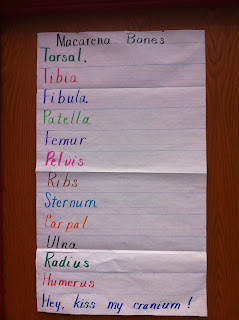 Macarena Bones
Tarsal.
Tibia
Fibula.
Patella
Femur
Pelvis
Ribs
Sternum
Carpal
Ulna
Radius
Humerus
Hey, kiss my cranium!